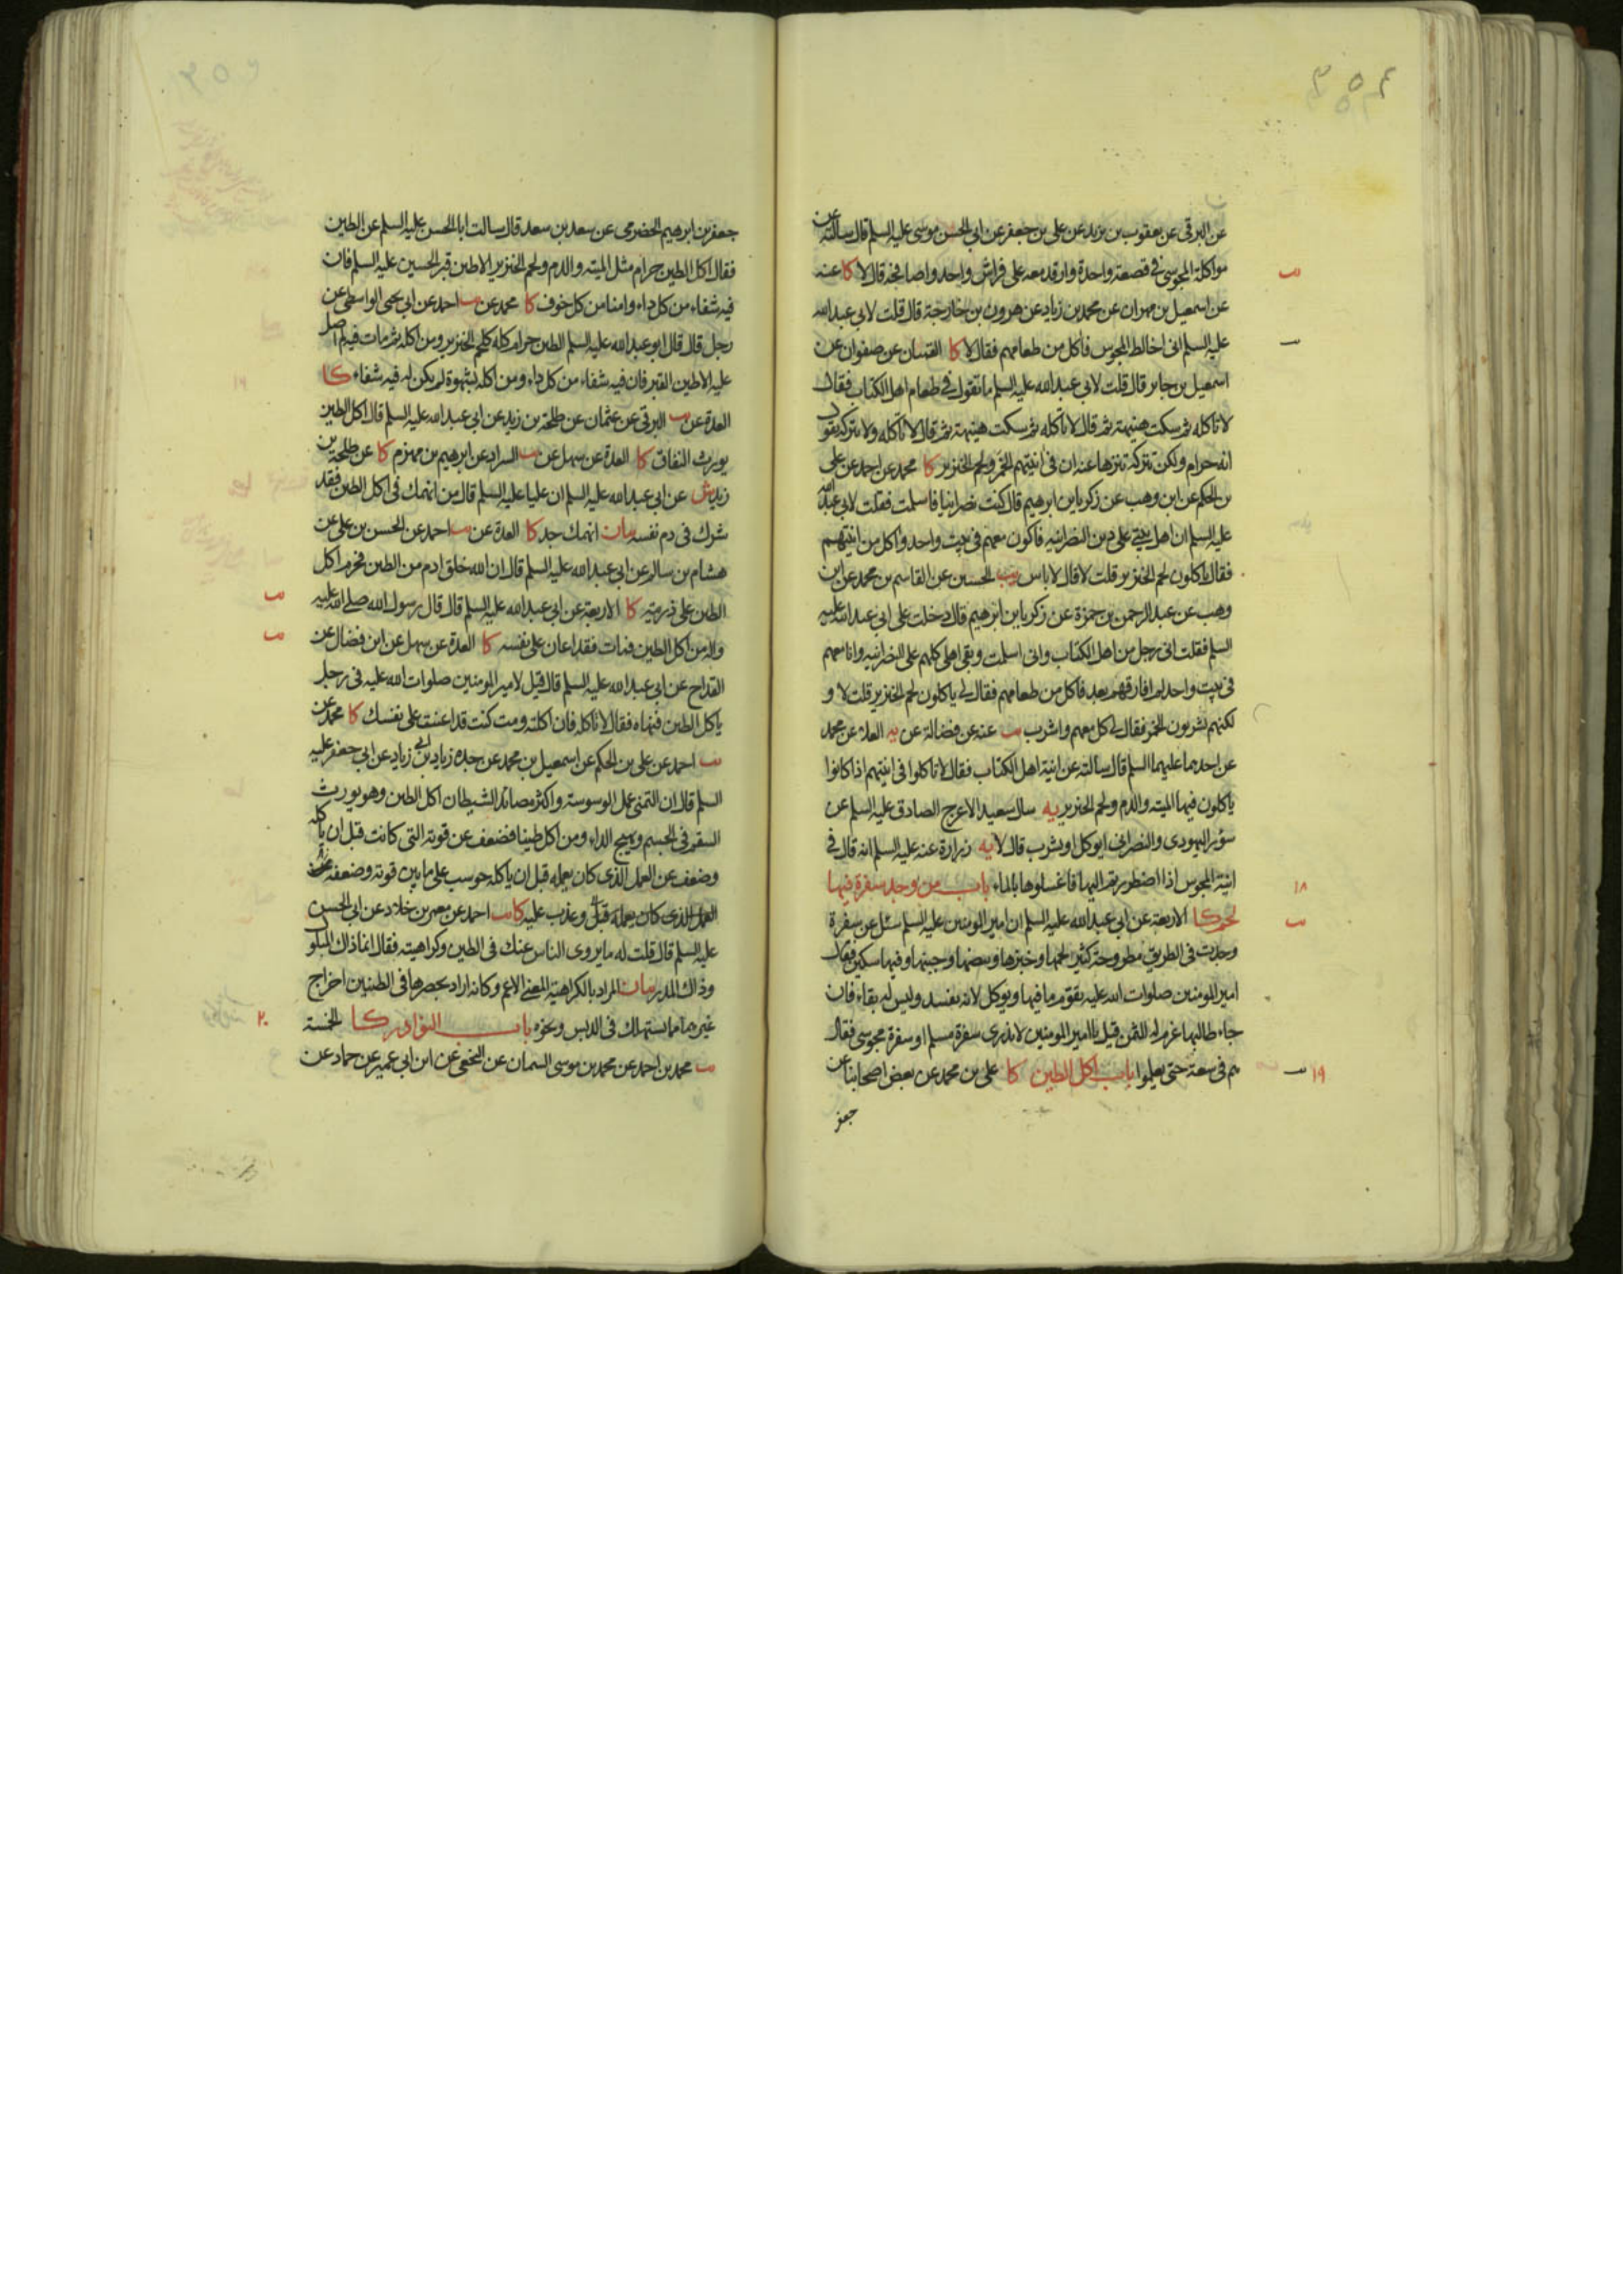 ٣٥٤
عن البرقی عن یعقوب بن یزید عن علی بن جعفر عن ابی الحسن موسی علیه السلم قال سالته عن
مواکلة المجوسی فی قصعة واحدة وارقد معه علی فراش واحد واصافحه قال لا کا عنه
عن اسمعیل بن مهران عن محمد بن زیاد عن هرون بن خارجة قال قلت لابی عبدالله
علیه السلم انی اخالط المجوس فاکل من طعامهم فقال لا کا القمیان عن صفوان عن
اسمعیل بن جابر قال قلت لابی عبدالله علیه السلم ما تقول فی طعام اهل الکتاب فقال
لا تاکله ثم سکت هنیهة ثم قال لا تاکله ثم سکت هنیهة ثم قال لا تاکله ولا تترکه تقول
انه حرام ولکن تترکه تنزها عنه ان فی انیتهم الخمر ولحم الخنزیر کا محمد عن احمد عن علی
بن الحکم عن ابن وهب عن زکریا بن ابرهیم قال کنت نصرانیا فاسلمت فقلت لابی عبدالله
علیه السلم ان اهل بیتی علی دین النصرانیه فاکون معهم فی بیت واحد واکل من انیتهم
فقال یاکلون لحم الخنزیر قلت لا قال لا باس یب الحسین عن القاسم بن محمد عن ابن
وهب عن عبدالرحمن بن حمزة عن زکریا بن ابرهیم قال دخلت علی ابی عبدالله علیه
السلم فقلت انی رجل من اهل الکتاب وانی اسلمت وبقی اهلی کلهم علی النصرانیه وانا معهم
فی بیت واحد لم افارقهم بعد فاکل من طعامهم فقال لی یاکلون لحم الخنزیر قلت لا و
لکنهم یشربون الخمر فقال لی کل معهم واشرب یب عنه عن فضالة عن یه العلا عن محمد
عن احدهما علیهما السلم قال سالته عن انیة اهل الکتاب فقال لا تاکلوا فی انیتهم اذا کانوا
یاکلون فیها المیته والدم ولحم الخنزیر یه سال سعید الاعرج الصادق علیه السلم عن
سؤر الیهودی والنصرانی ایوکل او یشرب قال لا یه زرارة عنه علیه السلم انه قال فی
انیة المجوس اذا اضطررتم الیها فاغسلوها بالماء باب من وجد سفرة فیها
١٨
لحم کا الاربعة عن ابی عبدالله علیه السلم ان امیر المومنین علیه السلم سئل عن سفرة
وجدت فی الطریق مطروحة کثیر لحمها وخبزها وبیضها وجبنها وفیها سکین فقال
امیر المومنین صلوات الله علیه یقوم ما فیها ویوکل لانه یفسد ولیس له بقاء فان
جاء طالبها غرم له الثمن قیل یا امیر المومنین لا ندری سفرة مسلم او سفرة مجوسی فقال
هم فی سعة حتی یعلموا باب اکل الطین کا علی بن محمد عن بعض اصحابنا عن
١٩
جعفر
جعفر بن ابرهیم الحضرمی عن سعد بن سعد قال سالت ابا الحسن علیه السلم عن الطین
فقال اکل الطین حرام مثل المیته والدم ولحم الخنزیر الا طین قبر الحسین علیه السلم فان
فیه شفاء من کل داء وامنا من کل خوف کا محمد عن یب احمد عن ابی یحیی الواسطی عن
رجل قال قال ابو عبدالله علیه السلم الطین حرام کله کلحم الخنزیر ومن اکله ثم مات فیه لم اصل
علیه الا طین القبر فان فیه شفاء من کل داء ومن اکله لشهوة لم یکن له فیه شفاء کا
العدة عن یب البرقی عن عثمان عن طلحة بن زید عن ابی عبدالله علیه السلم قال اکل الطین
یورث النفاق کا العدة عن سهل عن یب السراد عن ابرهیم بن مهزم کا عن طلحة بن
زید ش عن ابی عبدالله علیه السلم ان علیا علیه السلم قال من انهمک فی اکل الطین فقد
شرک فی دم نفسه بیان انهمک جد کا العدة عن یب احمد عن الحسن بن علی عن
هشام بن سالم عن ابی عبدالله علیه السلم قال ان الله خلق ادم من الطین فحرم اکل
الطین علی ذریته کا الاربعة عن ابی عبدالله علیه السلم قال قال رسول الله صلی الله علیه
واله من اکل الطین فمات فقد اعان علی نفسه کا العدة عن سهل عن ابن فضال عن
القداح عن ابی عبدالله علیه السلم قال قیل لامیر المومنین صلوات الله علیه فی رجل
یاکل الطین فنهاه فقال لا تاکله فان اکلته ومت کنت قد اعنت علی نفسک کا محمد عن
یب احمد عن علی بن الحکم عن اسمعیل بن محمد عن جده زیاد بن ابی زیاد عن ابی جعفر علیه
السلم قال ان التمنی عمل الوسوسة واکثر مصائد الشیطان اکل الطین وهو یورث
السقم فی الجسم ویهیج الداء ومن اکل طینا فضعف عن قوته التی کانت قبل ان یاکله
وضعف عن العمل الذی کان یعمله قبل ان یاکله حوسب علی ما بین قوته وضعفه
العمل الذی کان یعمله قبل وعذب علیه کا یب احمد عن معمر بن خلاد عن ابی الحسن
علیه السلم قال قلت له ما یروی الناس عنک فی الطین وکراهیته فقال انما ذاک المبلول
وذاک المدر بیان المراد بالکراهیة المعنی الاعم وکانه اراد بحصرها فی الطینین اخراج
غیرهما مما یستهلک فی الدبس ونحوه باب النوادر کا الخمسة
٢٠
یب محمد بن احمد عن محمد بن موسی السمان عن النخعی عن ابن ابی عمیر عن حماد عن